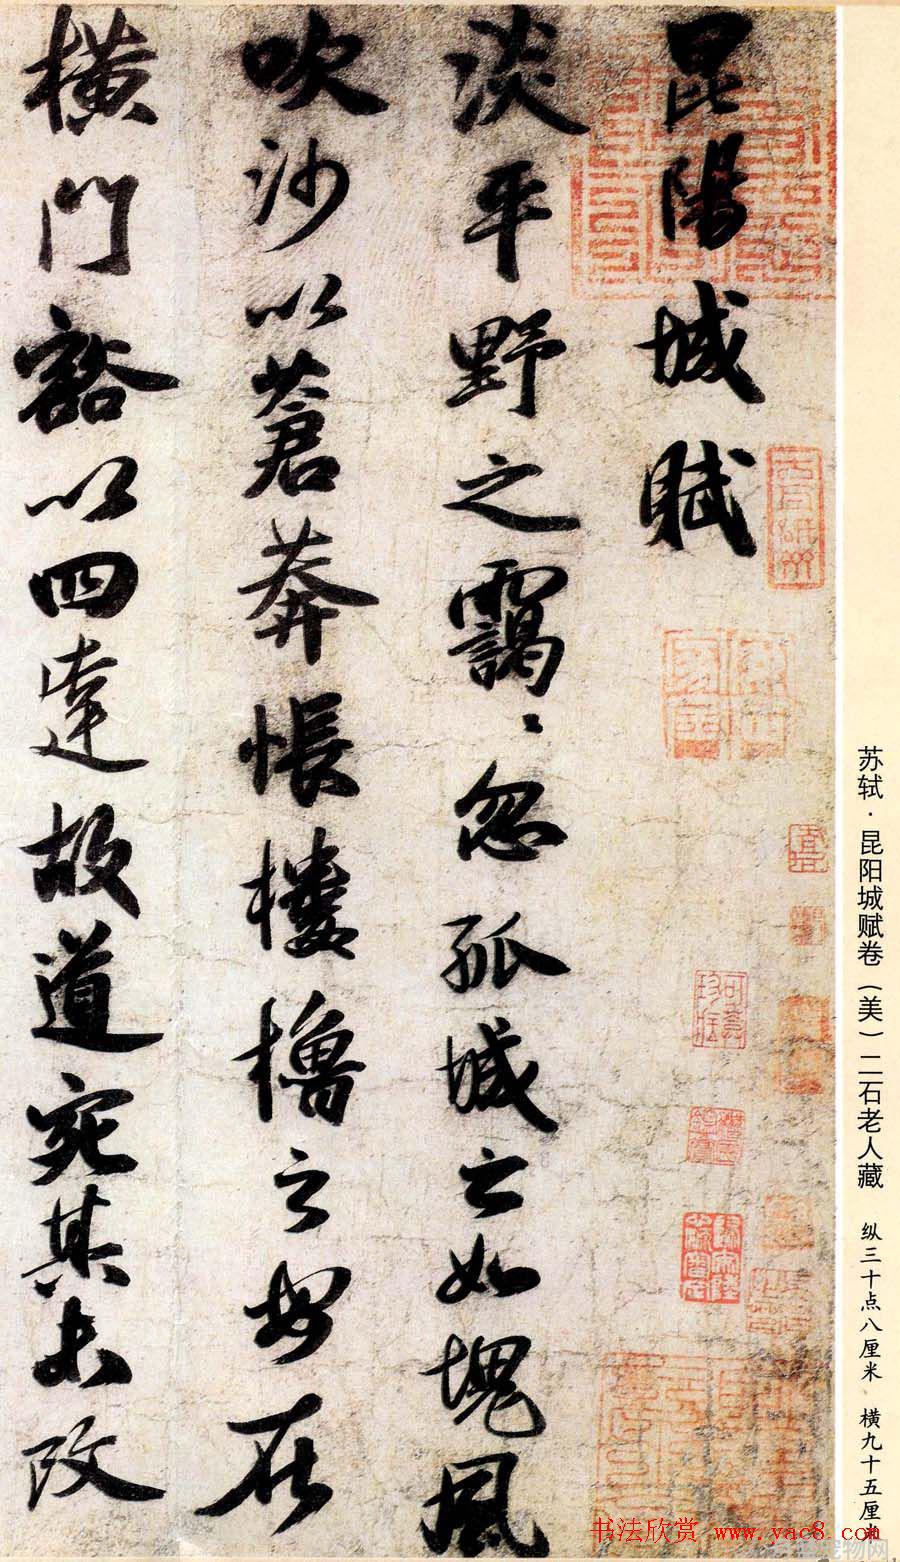 苏轼·昆阳城赋卷（美）二石老人藏 纵三十点八厘米 横九十五厘
昆陽城賦
淡平野之靄〻忽孤城之如塊風
吹沙以蒼莽悵樓櫓之安在
橫門豁以四達故道宛其未改
书法欣赏 www.yac8.com